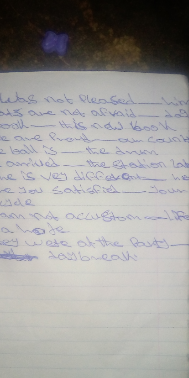 was not pleased — him
ats are not afraid — dogs
book — this new book
e are proud — our country
e ball is — the room
I arrived — the station late
he is very different — he
re you satisfied — your
cycle
am not accustomed
a horse
ey were at the party —
daybreak